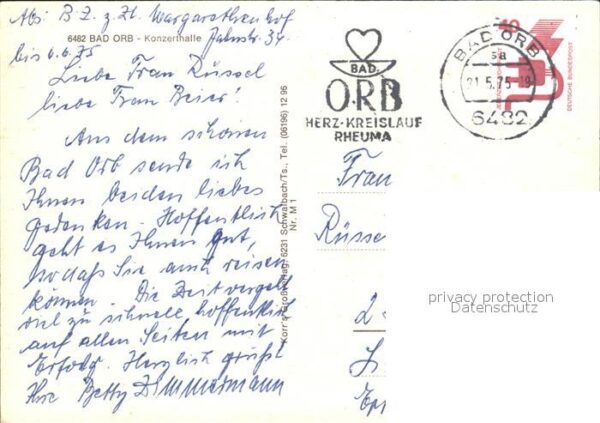 Abs: B. Z. z. Zt. Margarethenhof
6482 BAD ORB - Konzerthalle Jahnstr. 34
bis 6.6.75
Liebe Frau Rüssel
liebe Frau Beier!
Aus dem schönen
Bad Orb sende ich
Ihnen beiden liebes
gedenken. Hoffentlich
geht es Ihnen gut,
sodaß Sie auch reisen
können. Die Zeit vergeht
viel zu schnell, hoffentlich
auf allen Seiten mit
Erfolg. Herzlich grüßt
Ihre Betty Zimmermann
Korr's Großverlag, 6231 Schwalbach/Ts., Tel. (06196) 12 96
Nr. M 1
BAD
ORB
HERZ-KREISLAUF
RHEUMA
BAD ORB
sa
21.5.75-18
6482
40
DEUTSCHE BUNDESPOST
Frau
Rüsse
2
privacy protection
Datenschutz